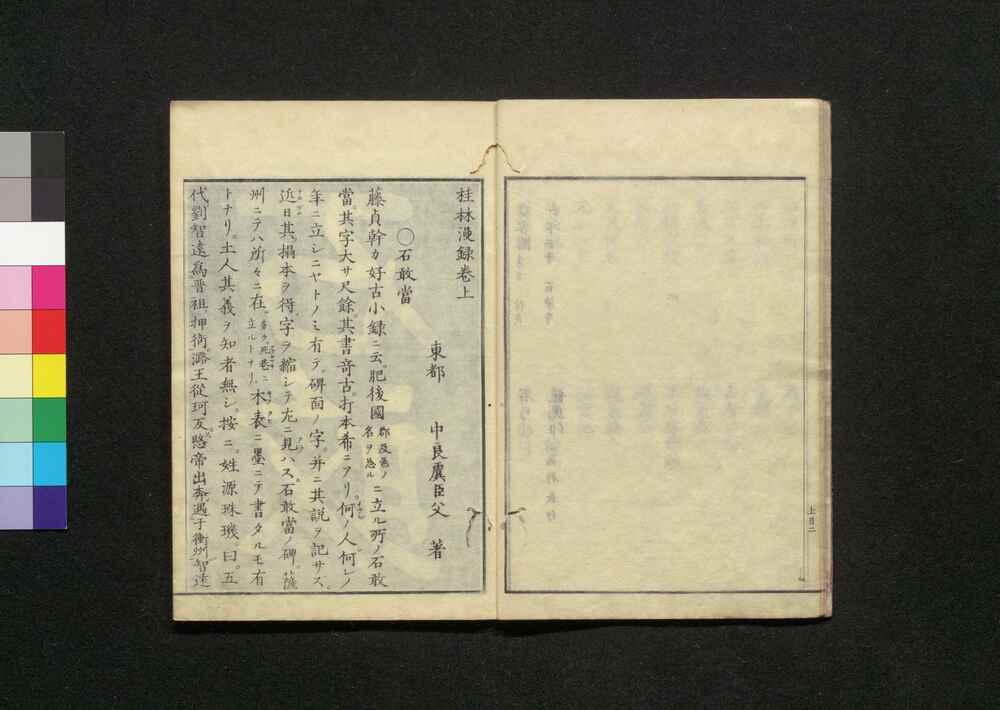 桂林漫録卷上
東都 中良虞臣父 著
〇石敢當
藤貞幹カ好古小録ニ云。肥後國郡及邑ノ名ヲ忘ルニ立ル所ノ石敢
當。其字大サ尺餘。其書竒古。打本希ニアリ。何ノ人何レノ
年ニ立シニヤトノミ有テ。碑面ノ字。并ニ其説ヲ記サス。
近日其搨本ヲ得。字ヲ縮シテ左ニ見ハス。石敢當ノ碑。薩
州ニテハ所々ニ在。立ルトナリ。木表ニ墨ニテ書タルモ有
トナリ。土人其義ヲ知者無シ。按ニ。姓源珠璣曰。五
代劉智遠爲晋祖押衙。潞王從珂反。愍帝出奔。遇于衛州。智遠
上目二